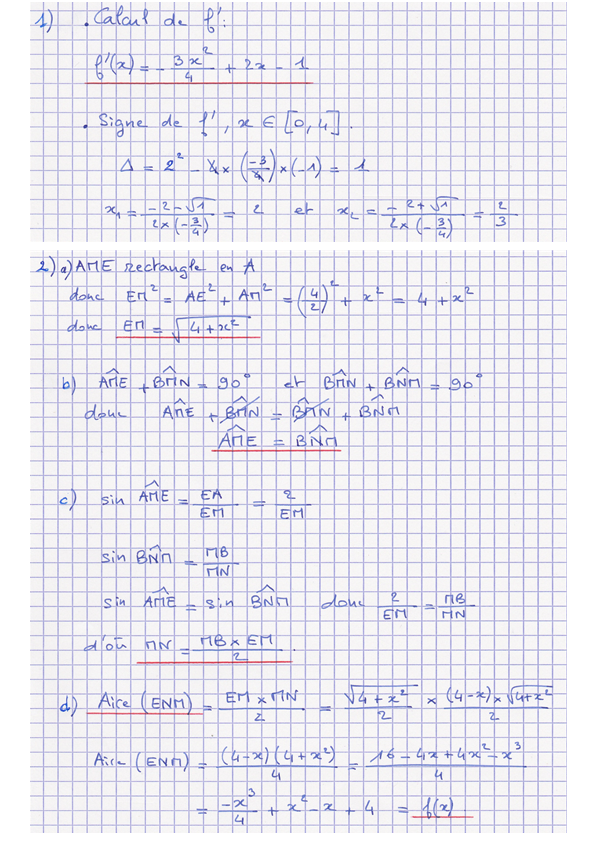 1) • Calcul de f' :
f'(x) = - 3x²/4 + 2x - 1
• Signe de f', x ∈ [0,4].
Δ = 2² - 4 × (-3/4) × (-1) = 1
x₁ = (-2-√1)/(2×(-3/4)) = 2 et x₂ = (-2+√1)/(2×(-3/4)) = 2/3
2) a) AME rectangle en A
donc EM² = AE² + AM² = (4/2)² + x² = 4 + x²
donc EM = √(4+x²)
b) AM̂E + BM̂N = 90° et BM̂N + BN̂M = 90°
donc AM̂E + BM̂N = BM̂N + BN̂M
AM̂E = BN̂M
c) sin AM̂E = EA/EM = 2/EM
sin BN̂M = MB/MN
sin AM̂E = sin BN̂M donc 2/EM = MB/MN
d'où MN = (MB×EM)/2.
d) Aire (ENM) = (EM×MN)/2 = √(4+x²)/2 × ((4-x)×√(4+x²))/2
Aire (ENM) = ((4-x)(4+x²))/4 = (16-4x+4x²-x³)/4
= -x³/4 + x² - x + 4 = f(x).